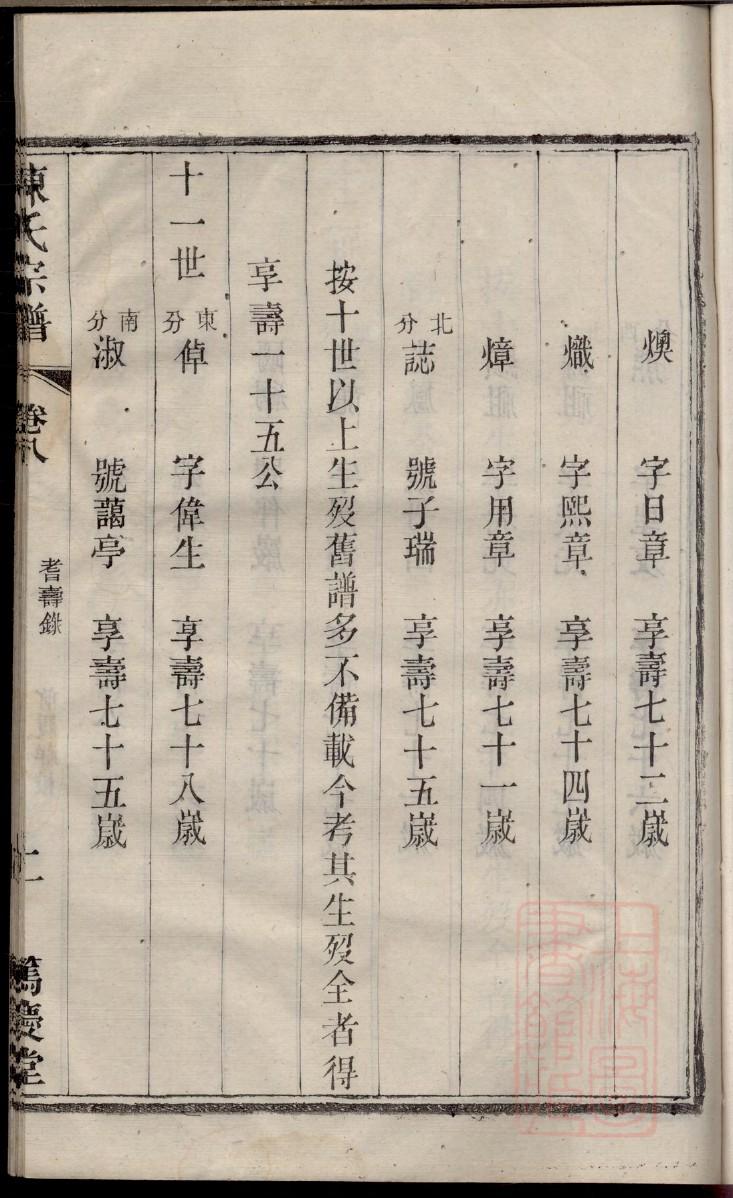 燠 字日章 享壽七十二歲
熾 字熙章 享壽七十四歲
煒 字用章 享壽七十一歲
北分 誌 號子瑞 享壽七十五歲
按十世以上生歿舊譜多不備載今考其生歿全者得
享壽一十五公
十一世 東分 倬 字偉生 享壽七十八歲
南分 淑 號藹亭 享壽七十五歲
陳氏宗譜 卷八 耆壽錄 十一 篤慶堂
上海圖書館藏